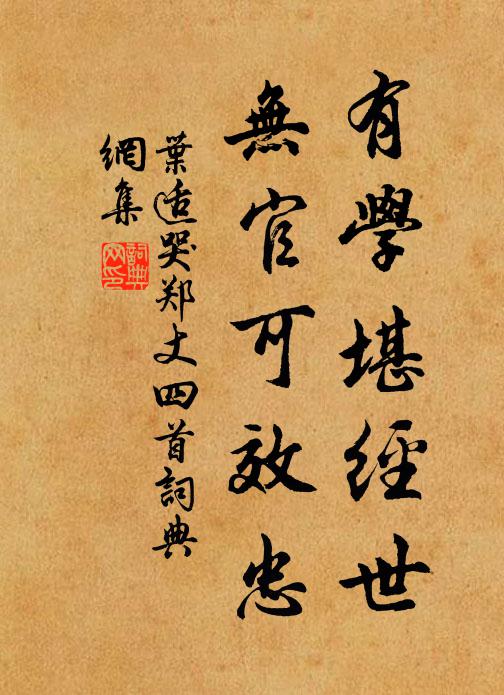 有學堪經世
無官可效忠
葉适哭郑丈四首詞典
網集
詞典
网印